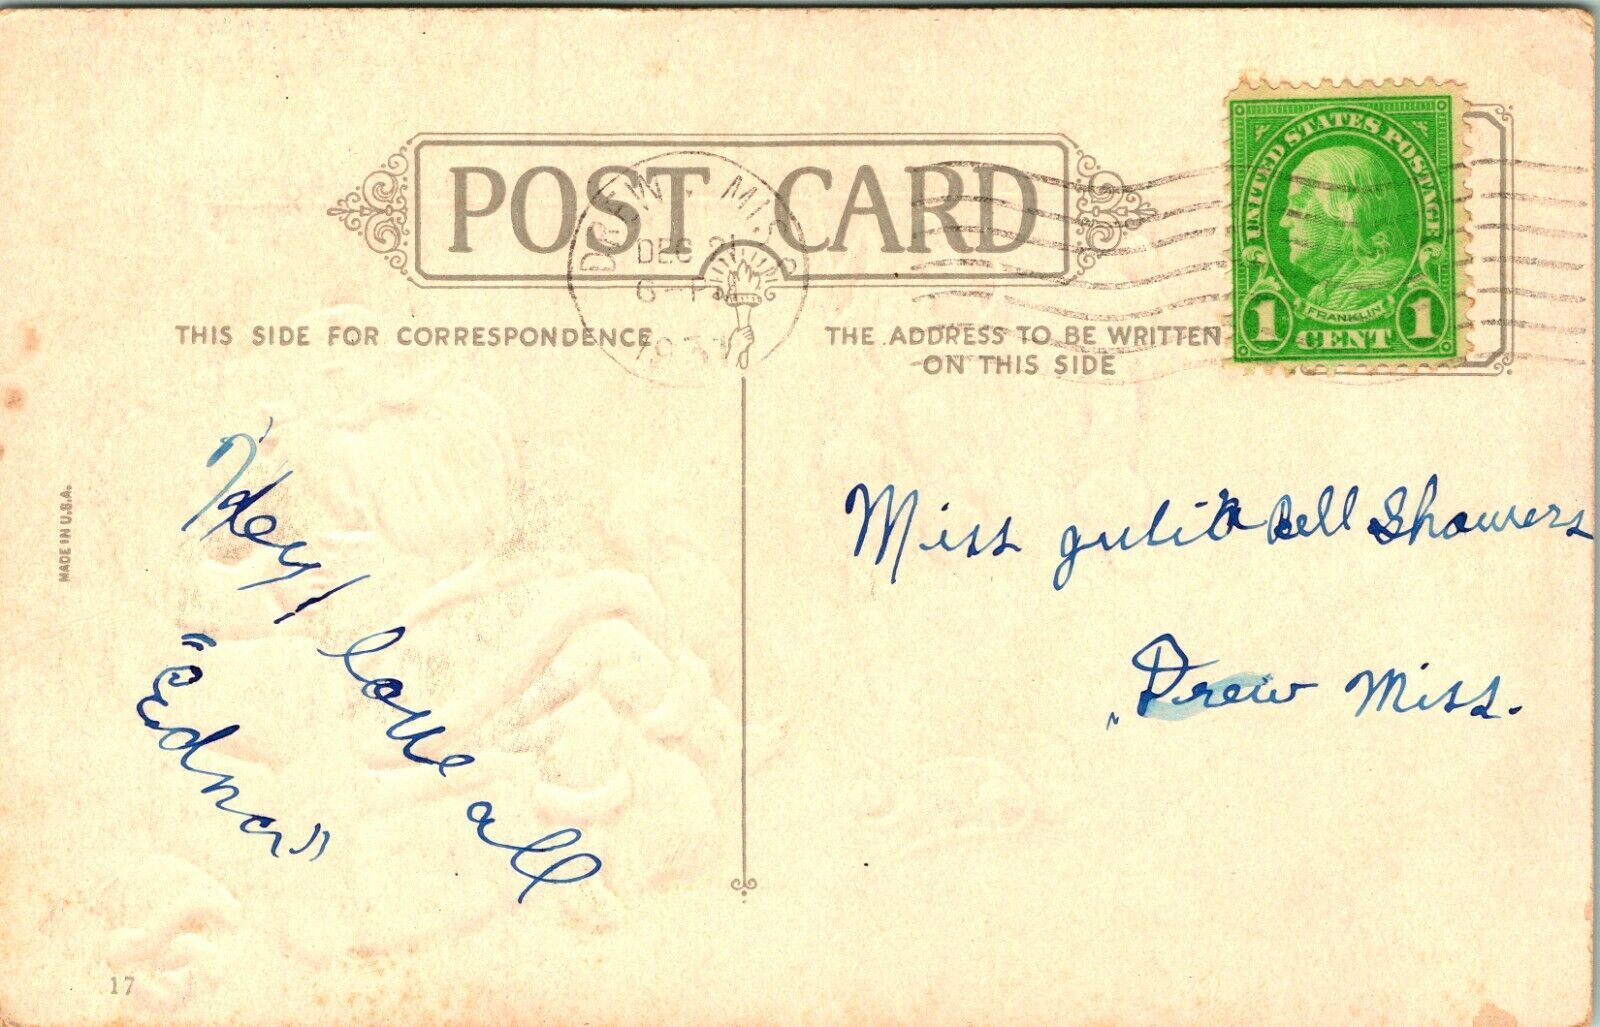 POST CARD
DREW. MISS
DEC 21
6-PM
UNITED STATES POSTAGE
FRANKLIN
1 CENT 1
THIS SIDE FOR CORRESPONDENCE
THE ADDRESS TO BE WRITTEN
ON THIS SIDE
MADE IN U.S.A.
Hey! love all
"Edna"
Miss Julia Bell Showers
Drew Miss.
17